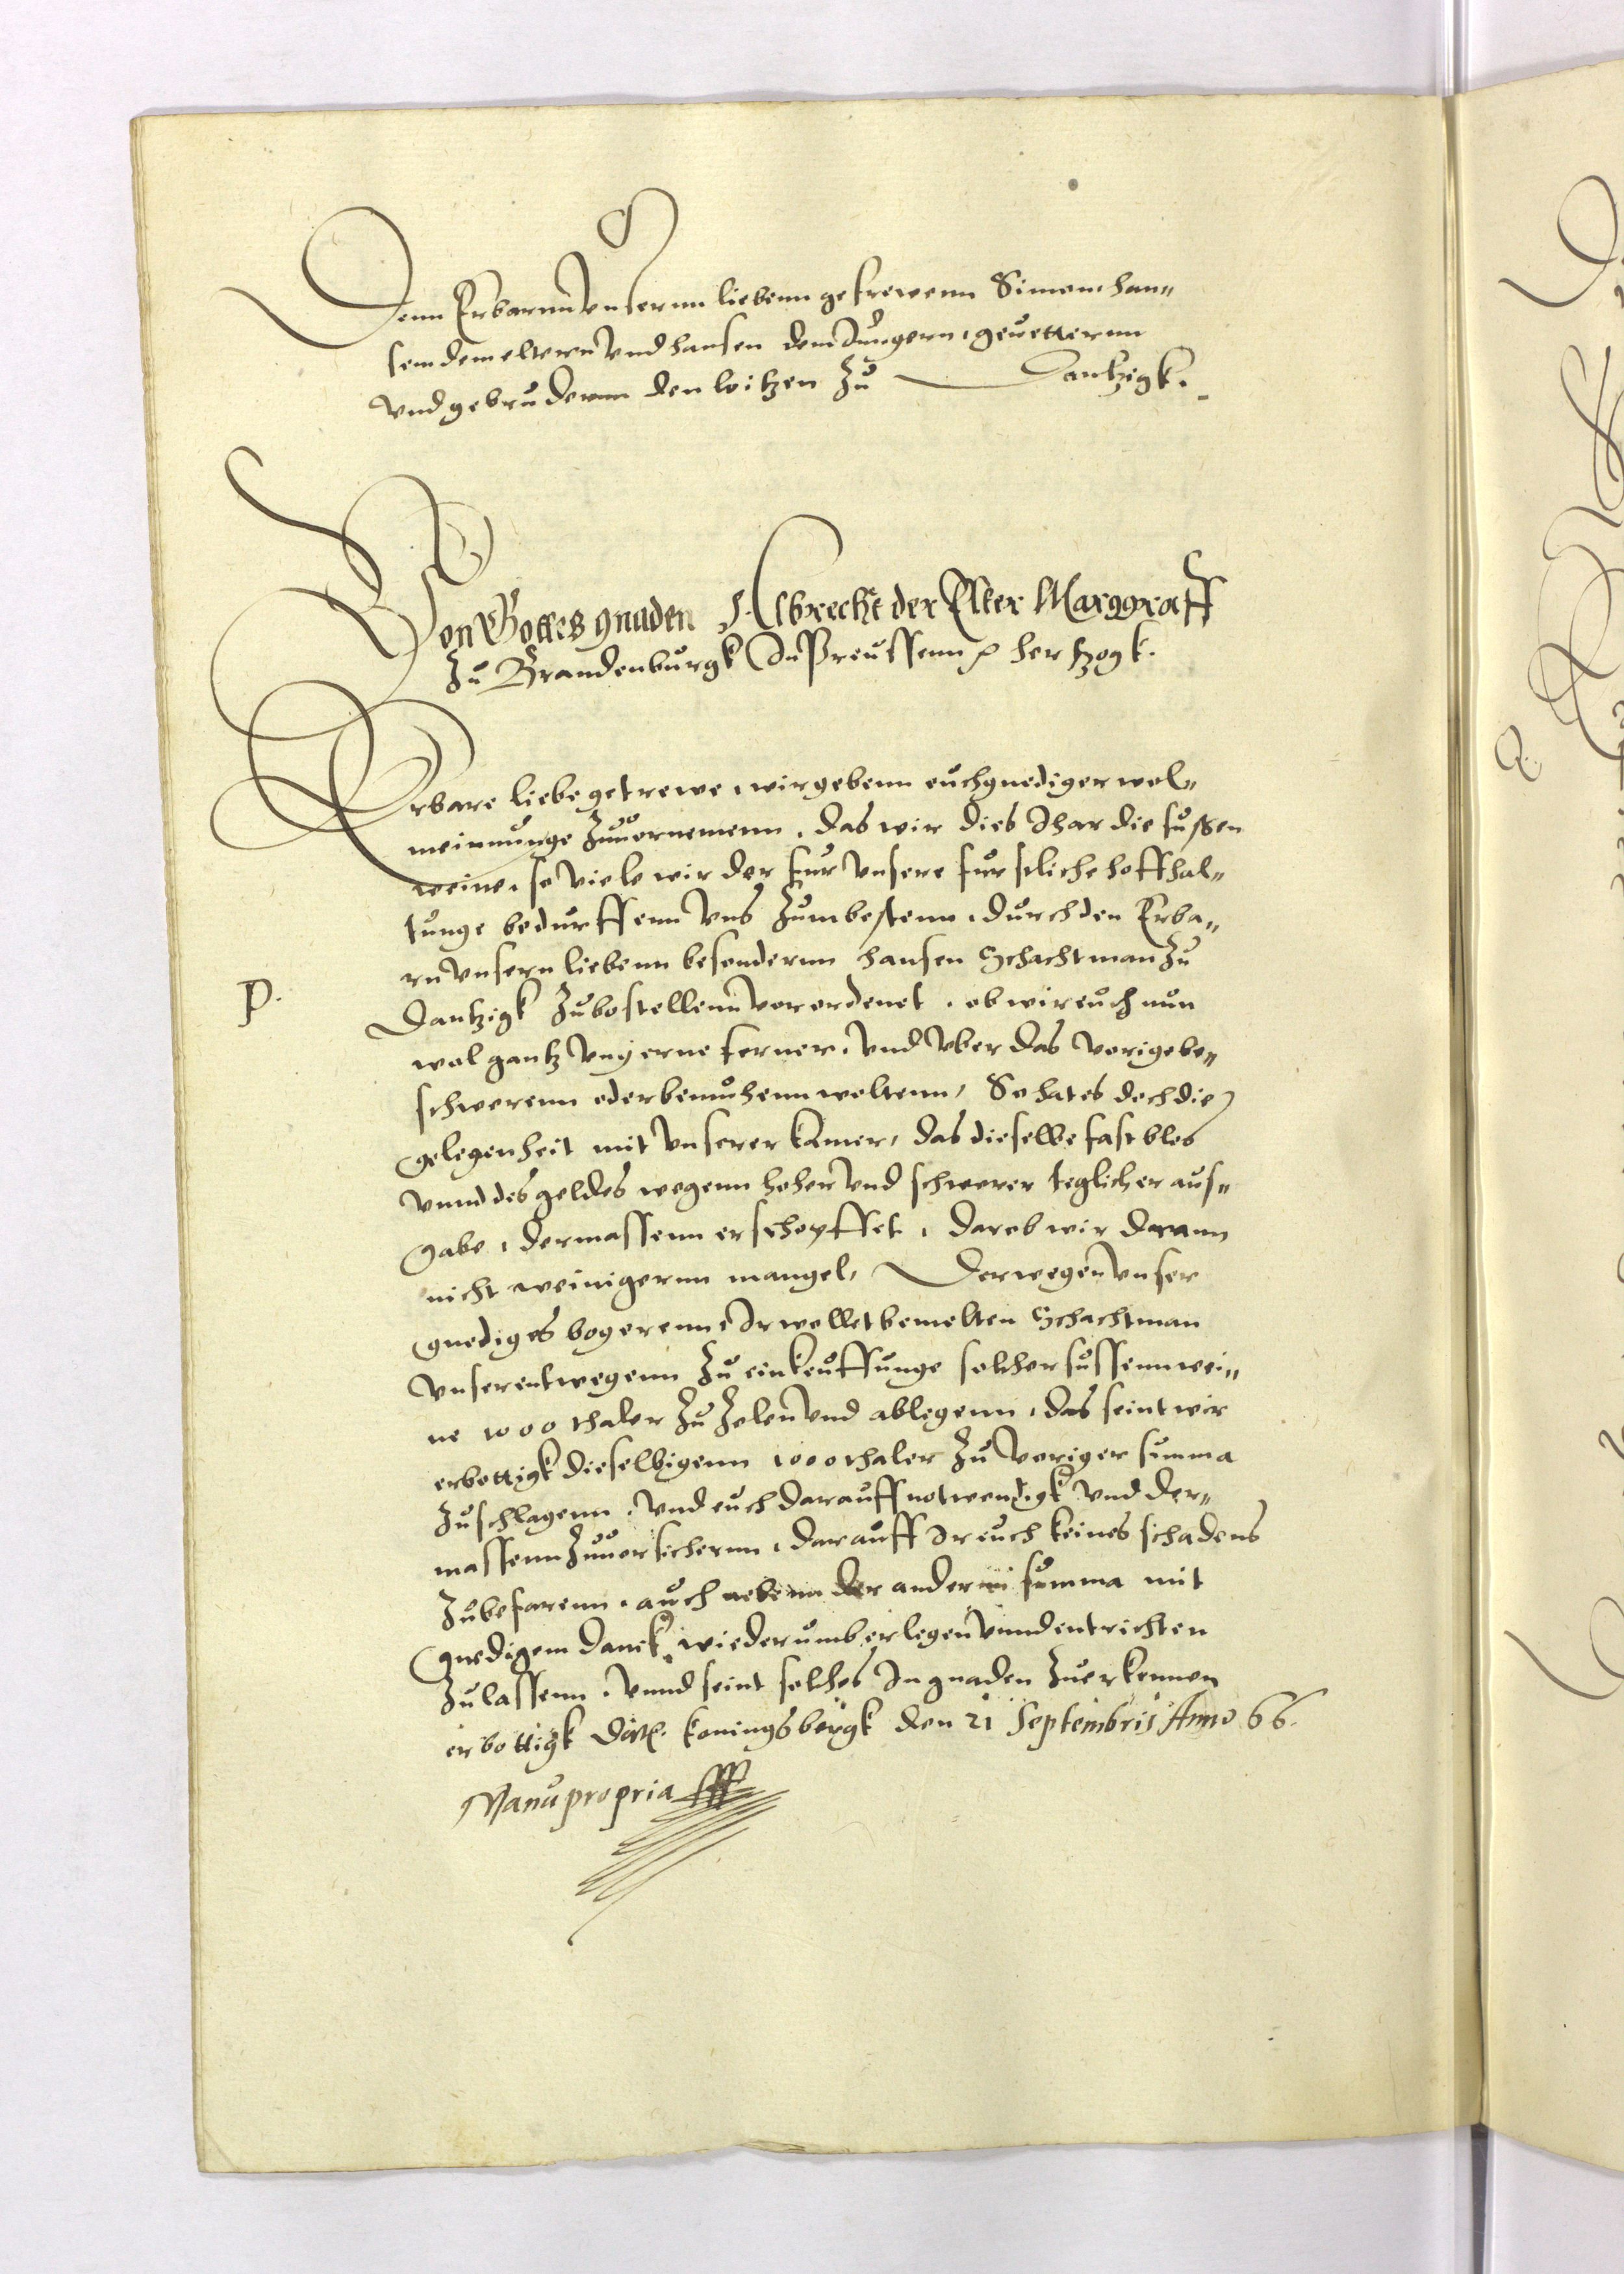 Denn Erbarnn Vnsernn liebenn getrewenn Simon han„
sen dem eltern Vnd hansen dem Jungern, geuetternn
Vnd gebrudernn den loitzen Zu Dantzigk.
Von Gottes gnaden Albrecht der Elter Marggraff
Zu Brandenburgk In Preussenn hertzogk.
Erbare liebe getrewe, wir gebenn euch gnediger wol„
meinunge Zuuornemenn, das wir dies Jhar die sussen
weine, so viele wir der fur Vnsere furstliche hoffhal„
tunge bedurffenn Vns Zum bestenn, durch den Erba„
rn Vnsern liebenn besondernn hansen Schachtman Zu
P.
Dantzigk Zubestellenn Verordenet, ob wir euch nun
wol gantz Vngerne ferner, Vnd Vber das Vorige be„
schwerenn oder bemuhenn woltenn, So hat es doch die
gelegenheit mit Vnserer Kamer, das dieselbe fast blos
Vnnd des geldes wegenn hoher Vnd schwerer teglicher aus„
gabe, dermassenn erschopffet, darob wir darann
nicht weinigernn mangel, Derwegen Vnser
gnediges begerenn Ir wollet bemelten Schachtman
Vnserentwegenn Zu einkeuffunge solcher sussenn wei„
ne 1000 thaler Zu Zelen Vnd ablegenn, das seint wir
erbottigk dieselbigenn 1000 thaler Zu Voriger summa
Zuschlagenn, Vnd euch darauff notwendigk Vnd der„
massenn Zuuorsichernn, darauff Ir euch keines schadens
Zubefarenn, auch nebenn der andernn summa mit
gnedigem danck, wiederumb erlegen Vnnd entrichten
Zulassenn, Vnnd seint solches In gnaden Zuerkennen
erbottigk Dat. Koningsbergk den 21 Septembris Anno 66.
Manu propria